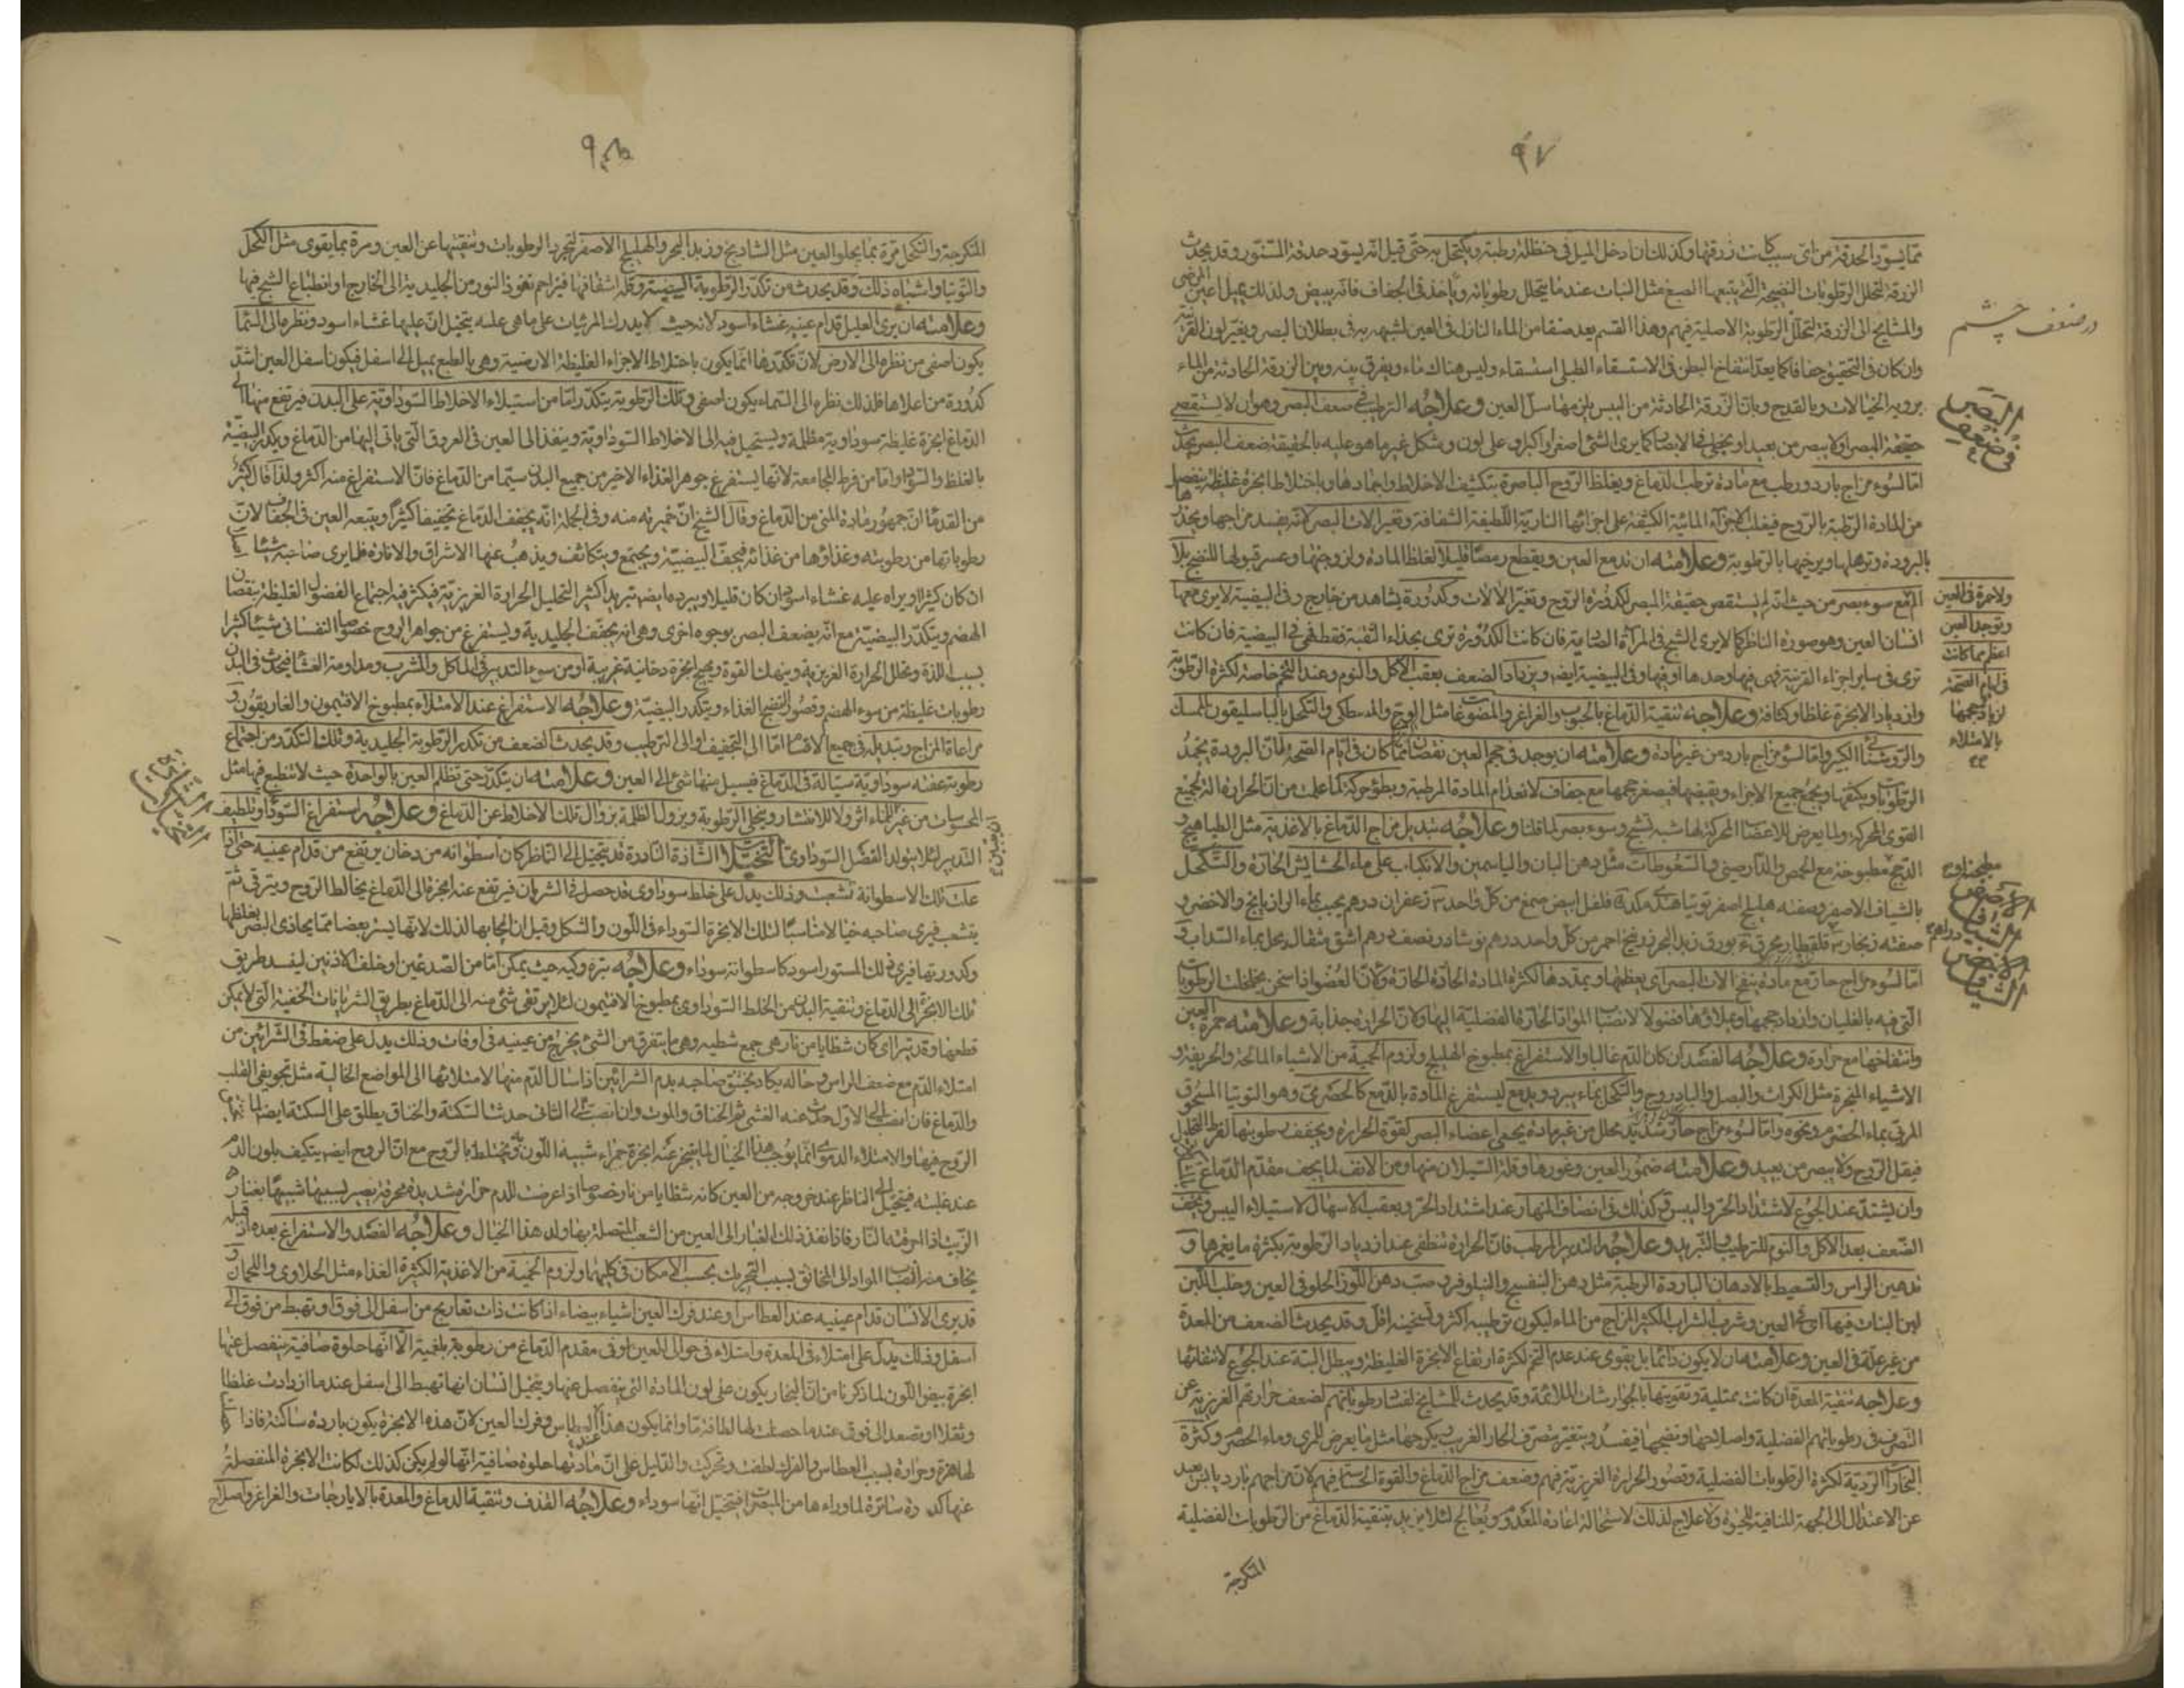 ٩٧
مما يسوّد الحدقة من اىّ سبب كانت زرقتها وكذلك ان ادخل الميل فى حنظلة رطبة ويكتحل به حتّى قيل انّه يسوّد حدقة السنّور وقد يحدث
الزرقة لتحلل الرطوبات النضيجة الّتى يتبعها الصبغ مثل النبات عندما يتحلل رطوباته وياخذ فى الجفاف فانّه يبيض ولذلك يميل اعين المرضى
والمشايخ الى الزرقة لتحلّل الرطوبة الاصلية فيهم وهذا القسم يعد صنفا من الماء النازل فى العين لشبهه به فى بطلان البصر وبغير لون القرنية
وان كان فى التحقيق جفافا كما يعدّ انتفاخ البطن فى الاستسقاء الطبلى استسقاء وليس هناك ماء ويفرق بينه وبين الزرقة الحادثة من الماء
بروية الخيالات وبالقدح وبانّ الزرقة الحادثة من اليبس يلزمها سلّ العين وعلاجه الترطيب ضعف البصر وهو ان لا يستقصى
حقيقة البصر او لا يبصر من بعيد او يخطى فى الابصار كما يرى الشئ اصغر او اكبر او على لون وشكل غير ما هو عليه بالحقيقة ضعف البصر يحدث
امّا لسوء مزاج بارد ورطب مع مادة ترطب الدماغ ويغلظ الروح الباصرة بتكثيف الاخلاط واجمادها وباختلاط ابخرة غليظة ينفصل
من المادة الرطبة بالروح فيغلب الاجزاء المائية الكثيفة على اجزائها النارية اللطيفة الشفافة وتغير الات البصر لانّه يفسد مزاجها ويخدر
بالبرودة وترهلها ويرخيها بالرطوبة وعلامته ان تدمع العين ويقطع رمصا قليلا لغلظ المادة ولزوجتها وعسر قبولها للنضج بلا
الم مع سوء بصر من حيث انّه لم يستقص حقيقة المبصر لكدورة الروح وتغير الالات وكدورة يشاهد من خارج وفى البيضية لا يرى معها
انسان العين وهو صورة الناظر كما لا يرى الشبح فى المرآة الصدية فان كانت الكدورة ترى بحذاء الثقبة فقط فهى فى البيضية فان كانت
ترى فى ساير اجزاء القرنية فهى فيها وحدها او فيها وفى البيضية ايضا ويزداد الضعف بعقب الاكل والنوم وعند التخم خاصة لكثرة الرطوبة
وازدياد الابخرة غلظا وكثافة وعلاجه تنقية الدماغ بالحبوب والغراغر والمضوغات مثل الوج والمصطكى والتكحل بالباسليقون الممسك
والروشنايا الكبير وامّا لسوء مزاج بارد من غير مادة وعلامته ان يوجد فى حجم العين نقصان عمّا كان فى ايام الصحة لانّ البرودة يجمد
الرطوبات ويكثفها ويجمع جميع الاجزاء ويقبضها فيصغر حجمها مع جفاف لانعدام المادة المرطبة وبطؤ حركة لما علمت من انّ الحرارة آلة لجميع
القوى المحركة ولما يعرض للاعضا المحركة لها شبه تشنج وسوء بصر لما قلنا وعلاجه تبديل مزاج الدماغ بالاغذية مثل الطياهيج
الدجج مطبوخة مع الحمص والدارصينى والسعوطات مثل دهن البان والياسمين والانكباب على ماء الحشايش الحارة والتكحل
بالشياف الاصفر
امّا لسوء مزاج حار مع مادة ينفخ الات البصر اى يعظمها ويمددها لكثرة المادة الحادة الحارة ولانّ العضو اذا سخن يتخلخل الرطوبات
الّتى فيه بالغليان وازداد حجمها وعلامته حمرة العين
وانتفاخها مع حرارة وعلاجه الفصد ان كان الدم غالبا والاستفراغ بمطبوخ الهليلج ولزوم الحمية من الاشياء المالحة والحريفة و
الاشياء المبخرة مثل الكراث والبصل والبادروج والتكحل بماء يبرد ويدمع ليستفرغ المادة بالدمع كالحصرمى وهو التوتيا المسحوق
المربى بماء الحصرم ونحوه وامّا لسوء مزاج حار
فيقل الروح ولا يبصر من بعيد وعلامته ضمور العين وغورها وقلة السيلان منها ومن الانف لما يجف مقدم الدماغ
وان يشتدّ عند الجوع لاشتداد الحرّ واليبس وكذلك فى انتصاف النهار وعند اشتداد الحر وبعقب الاسهال لاستيلاء اليبس ويخف
الضعف بعد الاكل والنوم للترطيب والتبريد وعلاجه التدبير المرطب فانّ الحرارة تنطفى عند ازدياد الرطوبة بكثرة ما يغمرها و
تدهين الراس والتسعيط بالادهان الباردة الرطبة مثل دهن البنفسج والنيلوفر وصبّ دهن اللوز الحلو فى العين وحلب اللبن
لبن البنات فيها اى فى العين وشرب الشراب الكثير المزاج من الماء ليكون ترطيبه اكثر وتسخينه اقل وقد يحدث الضعف من المعدة
من غير علّة فى العين وعلامته ان لا يكون دائما بل يقوى عند عدم التخم لكثرة ارتفاع الابخرة الغليظة ويبطل البتة عند الجوع لانتفائها
وعلاجه تنقية المعدة ان كانت ممتلية وتقويتها بالجوارشات الملائمة وقد يحدث للمشايخ لفساد رطوباتهم لضعف حرارتهم الغريزية عن
التصرف فى رطوباتهم الفضلية واصلاحها ونضجها فيفسد ويتغير بتصرف الحار الغريب
البخارات الردية لكثرة الرطوبات الفضلية وقصور الحرارة الغريزية فيهم وضعف مزاج الدماغ والقوة الحساسة فيهم لانّ مزاجهم بارد يابس بعيد
عن الاعتدال الى الجهة المنافية للحيوة ولا علاج لذلك لاستحالة اعادة المعدوم ويعالج لئلا يزيد بتنقية الدماغ من الرطوبات الفضلية
در ضعف چشم
فى ضعف البصر
ولا حمرة فى العين
وتوجد العين
اعظم مما كانت
فى ايام الصحة
لزيادة حجمها
بالامتلاء
الشياف الاصفر
الشياف الاخضر
المتكرجة
٩٨
المتكرجة والتكحل مرّة بما يجلو العين مثل الشاديخ وزبد البحر والهليلج الاصفر لتجرد الرطوبات وتنقيتها عن العين ومرة بما يقوى مثل الكحل
والتوتيا واشباه ذلك وقد يحدث من تكدّر الرطوبة البيضية وقلة اشفافها فيزاحم نفوذ النور من الجليدية الى الخارج او انطباع الشبح فيها
وعلامته ان يرى العليل قدام عينيه غشاء اسود لانه حيث لا يدرك المرئيات على ما هى عليه يتخيل انّ عليها غشاء اسود ونظره الى السما
يكون اصفى من نظره الى الارض لانّ تكدرها انّما يكون باختلاط الاجزاء الغليظة الارضية وهى بالطبع يميل الى اسفل فيكون اسفل العين اشدّ
كدورة من اعلاها فلذلك نظره الى السماء يكون اصفى وتلك الرطوبة يتكدر امّا من استيلاء الاخلاط السوداوية على البدن فيرتفع منها الى
الدماغ ابخرة غليظة سوداوية مظلمة ويستحيل فيه الى الاخلاط السوداوية وينفذ الى العين فى العروق الّتى ياتى اليها من الدماغ ويكدر البيضية
بالغلظ والسواد وامّا من فرط المجامعة لانّها يستفرغ جوهر الغذاء الاخير من جميع البدن سيّما من الدماغ فانّ الاستفراغ منه اكثر ولذا قال اكثر
من القدما انّ جمهور مادة المنى من الدماغ وقال الشيخ انّ خميرته منه وفى الجملة انّه يجفف الدماغ تجفيفا كثيرا ويتبعه العين فى الجفاف لانّ
رطوباتها من رطوبته وغذاؤها من غذائه فيجفّ البيضية ويجتمع ويتكاثف ويذهب عنها الاشراق والانارة فلا يرى صاحبه شيئا
ان كان كثيرا ويراه عليه غشاء اسود ان كان قليلا ويبرده ايضا تبريدا كثيرا لتحليل الحرارة الغريزية فيكثر فيه اجتماع الفضول الغليظة بنقصان
الهضم ويتكدّر البيضية مع انّه يضعف البصر بوجوه اخرى وهى انه يجفف الجليدية ويستفرغ من جواهر الروح خصوصا النفسانى شيئا كثيرا
بسبب اللذة وتحلل الحرارة الغريزية وينهك القوة ويهيج ابخرة دخانية غريبة او من سوء التدبير فى الماكل والمشرب ومداومة العشا فيحدث فى البدن
رطوبات غليظة من سوء الهضم وقصور النضج الغذاء ويتكدر البيضية وعلاجه الاستفراغ عند الامتلاء بمطبوخ الافتيمون والغاريقون و
مراعاة المزاج وتبديله فى جميع الاقسام امّا الى التجفيف او الى الترطيب وقد يحدث الضعف من تكدر الرطوبة الجليدية وذلك التكدّر من اجتماع
رطوبة عفنة سوداوية سيّالة فى الدماغ فيسيل منها شئ الى العين وعلامته ان يتكدر حتى تظلم العين بالواحدة حيث لا تنطبع فيها مثل
المحسوسات من غير للماء اثر ولا للانتشار ويتجلى الرطوبة ويزول الظلمة بزوال تلك الاخلاط عن الدماغ وعلاجه استفراغ السوداء وتلطيف
التدبير لئلا يتولد الفضل السوداوى التخيلات الشاذة النادرة قد يتخيل الى الناظر كان اسطوانة من دخان يرتفع من قدام عينيه حتى اذا
علت تلك الاسطوانة تشعبت وذلك يدل على خلط سوداوى قد حصل فى الشريان فيرتفع عنه ابخرة الى الدماغ يخالط الروح ويترقى ثم
يتشعب فيرى صاحبه خيالا مناسبا لتلك الابخرة السوداء فى اللون والشكل وقيل ان ايجابها لذلك لانّها يستر بعضا ممّا يحاذى البصر بغلظها
وكدورتها فيرى ذلك المستور اسود كاسطوانة سوداء وعلاجه بتره وكيه حيث يمكن امّا من الصدغين او خلف الاذنين ليفسد طريق
تلك الابخرة الى الدماغ وتنقية البدن من الخلط السوداوى بمطبوخ الافتيمون لئلا يرتقى شئ منه الى الدماغ بطريق الشريانات الخفية الّتى لا يمكن
قطعها وقد يتراى كان شظايا من نار هى جمع شظية وهى ما يتفرق من الشئ يخرج من عينيه فى اوقات وذلك يدل على ضغط فى الشرائين من
امتلاء الدم مع ضعف الراس وحاله يكاد يختنق صاحبه بدم الشرائين اذا سال الدم منها لامتلائها الى المواضع الخالية مثل تجويفى القلب
والدماغ فان انصب الى الاول حدث عنه الغشى ثم الخناق والموت وان انصبّ الى الثانى حدث السكتة والخناق يطلق على السكتة ايضا
الروح فيها والامتلاء الدموى انّما يوجب هذا الخيال لما يتبخر عنه ابخرة حمراء شبيهة اللون به ويختلط بالروح مع انّ الروح ايضا يتكيف بلون الدم
عند غلبته فيتخيل الى الناظر عند خروجه من العين كانه شظايا من نار خصوصا اذا عرضت للدم حرارة شديدة محرقة يصير بسببها شبيها بغبار
الزيت اذا احرقته النار فاذا نفذ ذلك الغبار الى العين من الشعب المتصلة بها ولد هذا الخيال وعلاجه الفصد والاستفراغ بعده اذ قبله
يخاف منه انصباب المواد الى المخانق بسبب التحريك بحسب الامكان فى كليهما ولزوم الحمية من الاغذية الكثيرة الغذاء مثل الحلاوى واللحمان و
قد يرى الانسان قدام عينيه عند العطاس او عند فرك العين اشياء بيضاء اذا كانت ذات تعاريج من اسفل الى فوق او تهبط من فوق الى
اسفل وذلك يدلّ على امتلاء فى المعدة وامتلاء فى حوالى العين او فى مقدم الدماغ من رطوبة بلغمية الّا انّها حلوة صافية ينفصل عنها
ابخرة بيض اللون لما ذكرنا من انّ البخار يكون على لون المادة التى ينفصل عنها ويتخيل انسان انها تهبط الى اسفل عندما ازدادت غلظا
وثقلا او تصعد الى فوق عندما حصلت لها لطافة ما وانما يكون هذا عند العطاس وفرك العين لانّ هذه الابخرة يكون باردة ساكنة فاذا
لها هزة وحرارة بسبب العطاس والفرك لطفت وتحركت والدليل على انّ مادتها حلوة صافية انّها لو لم يكن كذلك لكانت الابخرة المنفصلة
عنها كدرة ساترة لما وراءها من المبصرات فيتخيل انّها سوداء وعلاجه القذف وتنقية الدماغ والمعدة بالايارجات والغراغر واصلاح